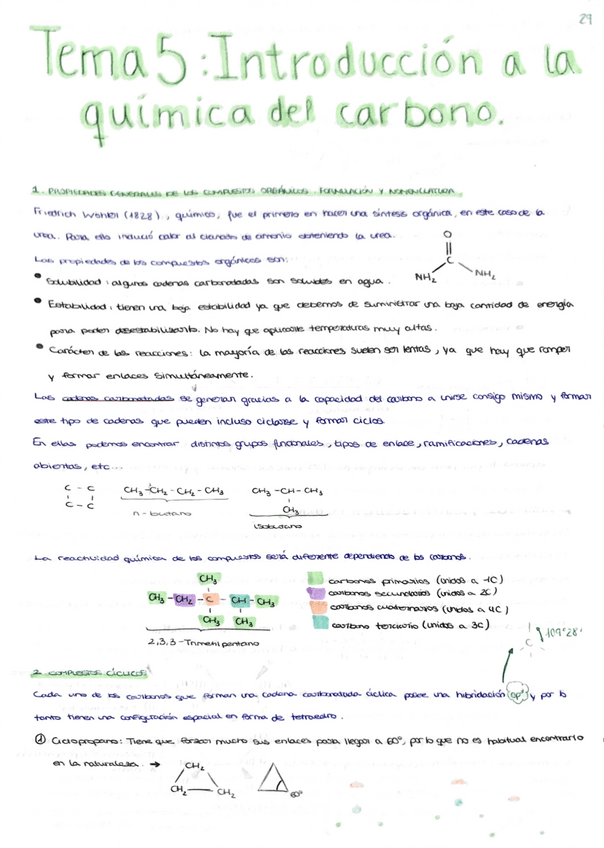 29
Tema 5: Introducción a la
química del carbono.
1. PROPIEDADES GENERALES DE LOS COMPUESTOS ORGÁNICOS. FORMULACIÓN Y NOMENCLATURA
Friedrich Wöhler (1828), químico, fue el primero en hacer una síntesis orgánica, en este caso de la
urea. Para ello indució calor al cianato de amonio obteniendo la urea.
Las propiedades de los compuestos orgánicos son:
O
C
NH2 NH2
• Solubilidad: algunas cadenas carbonatadas son solubles en agua.
• Estabilidad: tienen una baja estabilidad ya que debemos de suministrar una baja cantidad de energía
para poder desestabilizarlo. No hay que aplicarle temperaturas muy altas.
• Carácter de las reacciones: la mayoría de las reacciones suelen ser lentas, ya que hay que romper
y formar enlaces simultáneamente.
Las cadenas carbonatadas se generan gracias a la capacidad del carbono a unirse consigo mismo y formar
este tipo de cadenas que pueden incluso ciclarse y formar ciclos.
En ellas podemos encontrar distintos grupos funcionales, tipos de enlace, ramificaciones, cadenas
abiertas, etc...
C - C CH3-CH2-CH2-CH3 CH3-CH-CH3
C - C n-butano CH3
isobutano
La reactividad química de los compuestos será diferente dependiendo de los carbonos.
CH3
CH3-CH2-C-CH-CH3
CH3 CH3
2,3,3-Trimetilpentano
carbonos primarios (unidos a 1C)
carbonos secundarios (unidos a 2C)
carbonos cuaternarios (unidos a 4C)
carbono terciario (unidos a 3C)
C 109'28'
2. COMPUESTOS CÍCLICOS
Cada uno de los carbonos que forman una cadena carbonatada cíclica posee una hibridación sp3 y por lo
tanto tienen una configuración espacial en forma de tetraedro.
① Ciclopropano: Tiene que forzar mucho sus enlaces para llegar a 60º, por lo que no es habitual encontrarlo
en la naturaleza. →
CH2
CH2 CH2 60º